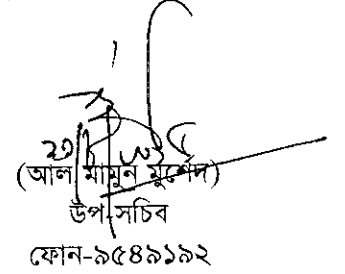 (আল মামুন মুর্শেদ)
উপ-সচিব
ফোন-৯৫৪৯১৯২